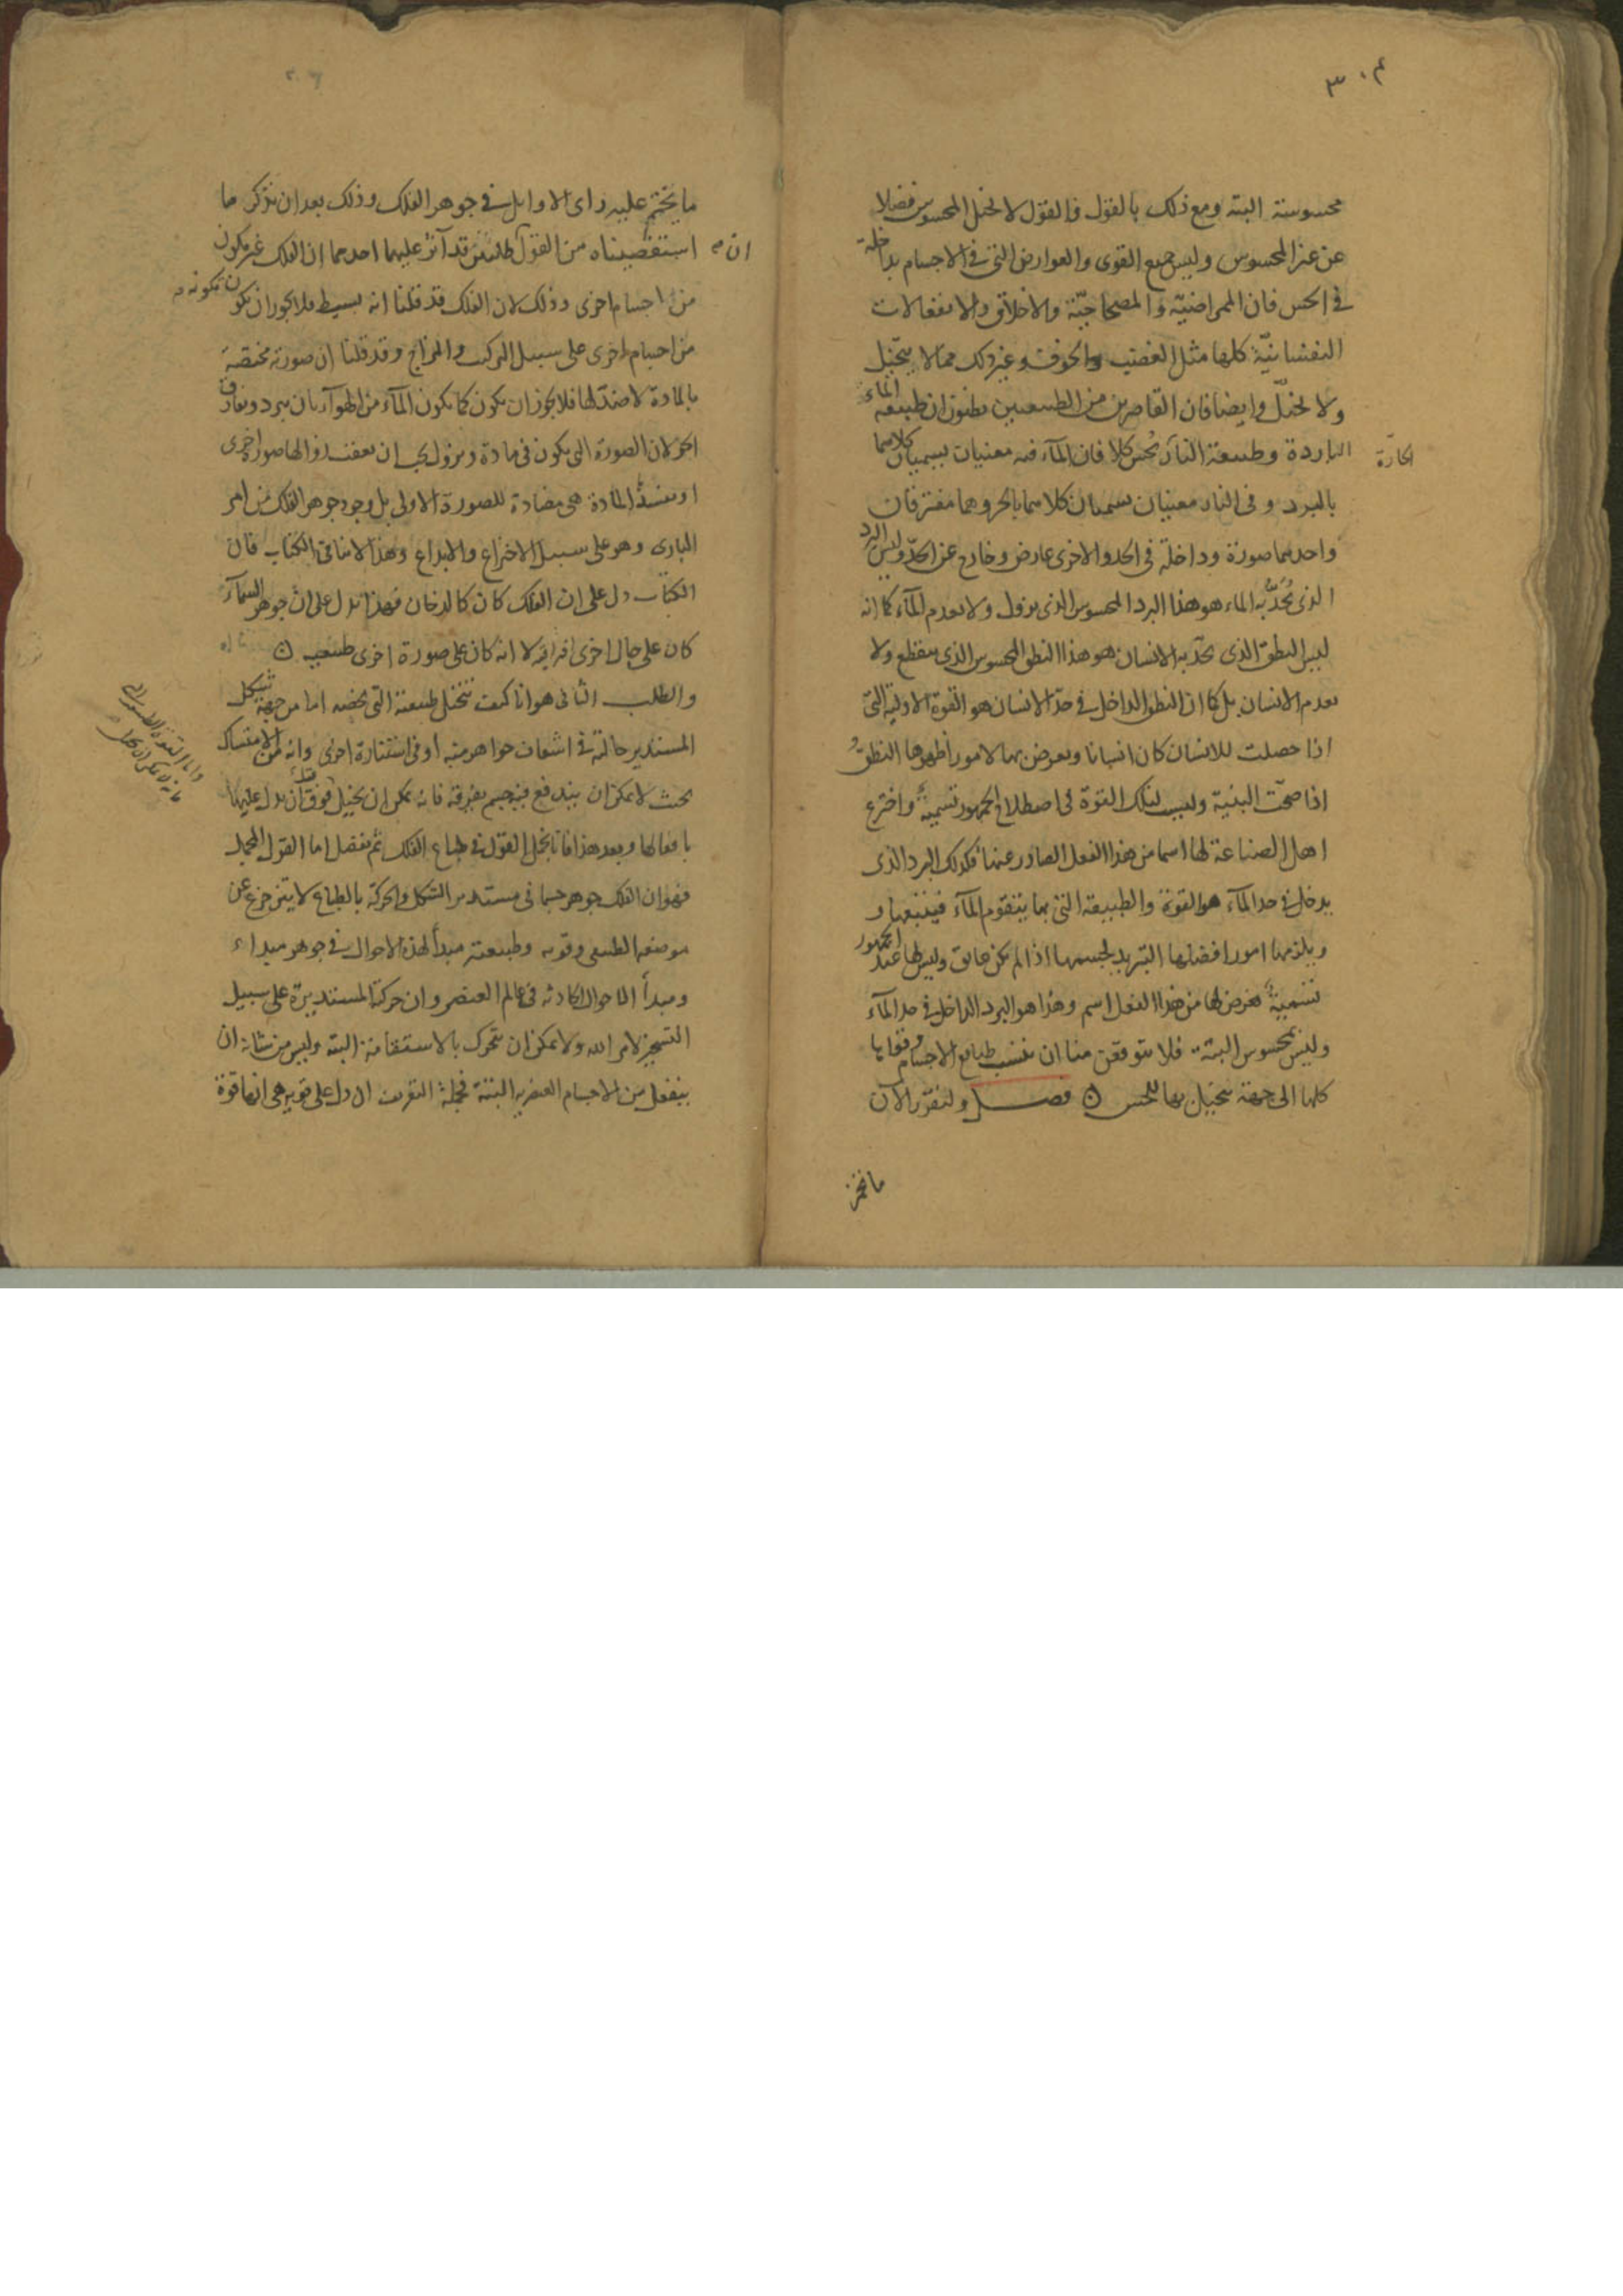 ٣٠٤
محسوسة البتة ومع ذلك بالقول فالقول لا يخيل المحسوس فضلا
عن غير المحسوس وليس جميع القوى والعوارض التى فى الاجسام بداخلة
فى الحس فان الممراضية والمصحاحية والاخلاق والانفعالات
النفسانية كلها مثل الغضب والخوف وغير ذلك مما لا يتخيل
ولا يخيل وايضا فان القاصرين من الطبيعيين يظنون ان طبيعة الماء
الباردة وطبيعة النار تحس كلا فان الماء فيه معنيان يسميان كلاهما
الحارة
بالبرد وفى النار معنيان يسميان كلاهما بالحر وهما مفترقان
واحدهما صورة وداخلة فى الحد والاخرى عارض وخارج عن الحد وليس البرد
الذى يُحَدُّ به الماء هو هذا البرد المحسوس الذى يزول ولا يعدم الماء كما انه
ليس النطق الذى يحد به الانسان هو هذا النطق المحسوس الذى ينقطع ولا
يعدم الانسان بل كما ان النطق الداخل فى حد الانسان هو القوة الاولية التى
اذا حصلت للانسان كان انسانا ويعرض بها الامور اظهرها النطق
اذا صحت البنية وليس لتلك القوة فى اصطلاح الجمهور تسمية واخترع
اهل الصناعة لها اسما من هذا الفعل الصادر عنها فكذلك البرد الذى
يدخل فى حد الماء هو القوة والطبيعة التى بها يتقوم الماء فيتبعها و
ويلزمها امورا افضلها التبريد لجسمها اذا لم يكن عايق وليس لها عند الجمهور
تسمية فعرض لها من هذا الفعل اسم وهذا هو البرد الداخل فى حد الماء
وليس بمحسوس البتة فلا يتوقعن منا ان ننسب طبايع الاجسام وقواها
كلها الى جهة يتخيل بها للحس ۞ فصل ولنقرر الآن
ما يختم
ما يختم عليه راى الاوايل فى جوهر الفلك وذلك بعد ان نذكر ما
استقصيناه من القول قد آثر عليهما احدهما ان الفلك غير مكون
ان
من اجسام اخرى وذلك لان الفلك قد قلنا انه بسيط فلا يجوز ان يكون تكونه
من اجسام اخرى على سبيل التركيب والمزاج وقد قلنا ان صورته مختصة
بالمادة لا ضد لها فلا يجوز ان يكون كما يكون الماء من الهوآء بان يبرد ويفارق
الحر لان الصورة التى يكون فى مادة ويزول يجب ان صورة اخرى
المادة هى مضادة للصورة الاولى بل وجود جوهر الفلك من امر
البارى وهو على سبيل الاختراع والابداع وهذا لا ينافى الكتاب فان
الكتاب دل على ان الفلك كان كالدخان فهذا يدل على ان جوهر السمآء
كان على حال اخرى لا انه كان على صورة اخرى طبيعية ۞
والطلب الثانى هو انا كيف نتخيل طبيعته التى تخصه اما من جهة شكل
المستدير حاله فى اشفاف جواهر منه او فى استنارة اخرى وانه من الاستمساك
بحيث لا يمكن ان يندفع فيه جسم يفرقه فانه يمكن ان يخيل ان يدل عليها
بافعالها وبعد هذا فانا نجمل القول فى طباع الفلك ثم نفصل اما القول المجمل
فهو ان الفلك جوهر جسمانى مستدير الشكل والحركة بالطباع لا يتزحزح عن
موضعه الطبيعى وقوته وطبيعته مبدأ لهذه الاحوال فى جوهر مبداء
ومبدأ الاحوال الحادثة فى عالم العنصر وان حركته المستديرة على سبيل
التسخير لامر الله ولا يمكن ان يتحرك بالاستقامة البتة وليس من شانه ان
ينفعل من الاجسام العنصرية البتة فجملة التعريف الدل على قوته هى انها قوة